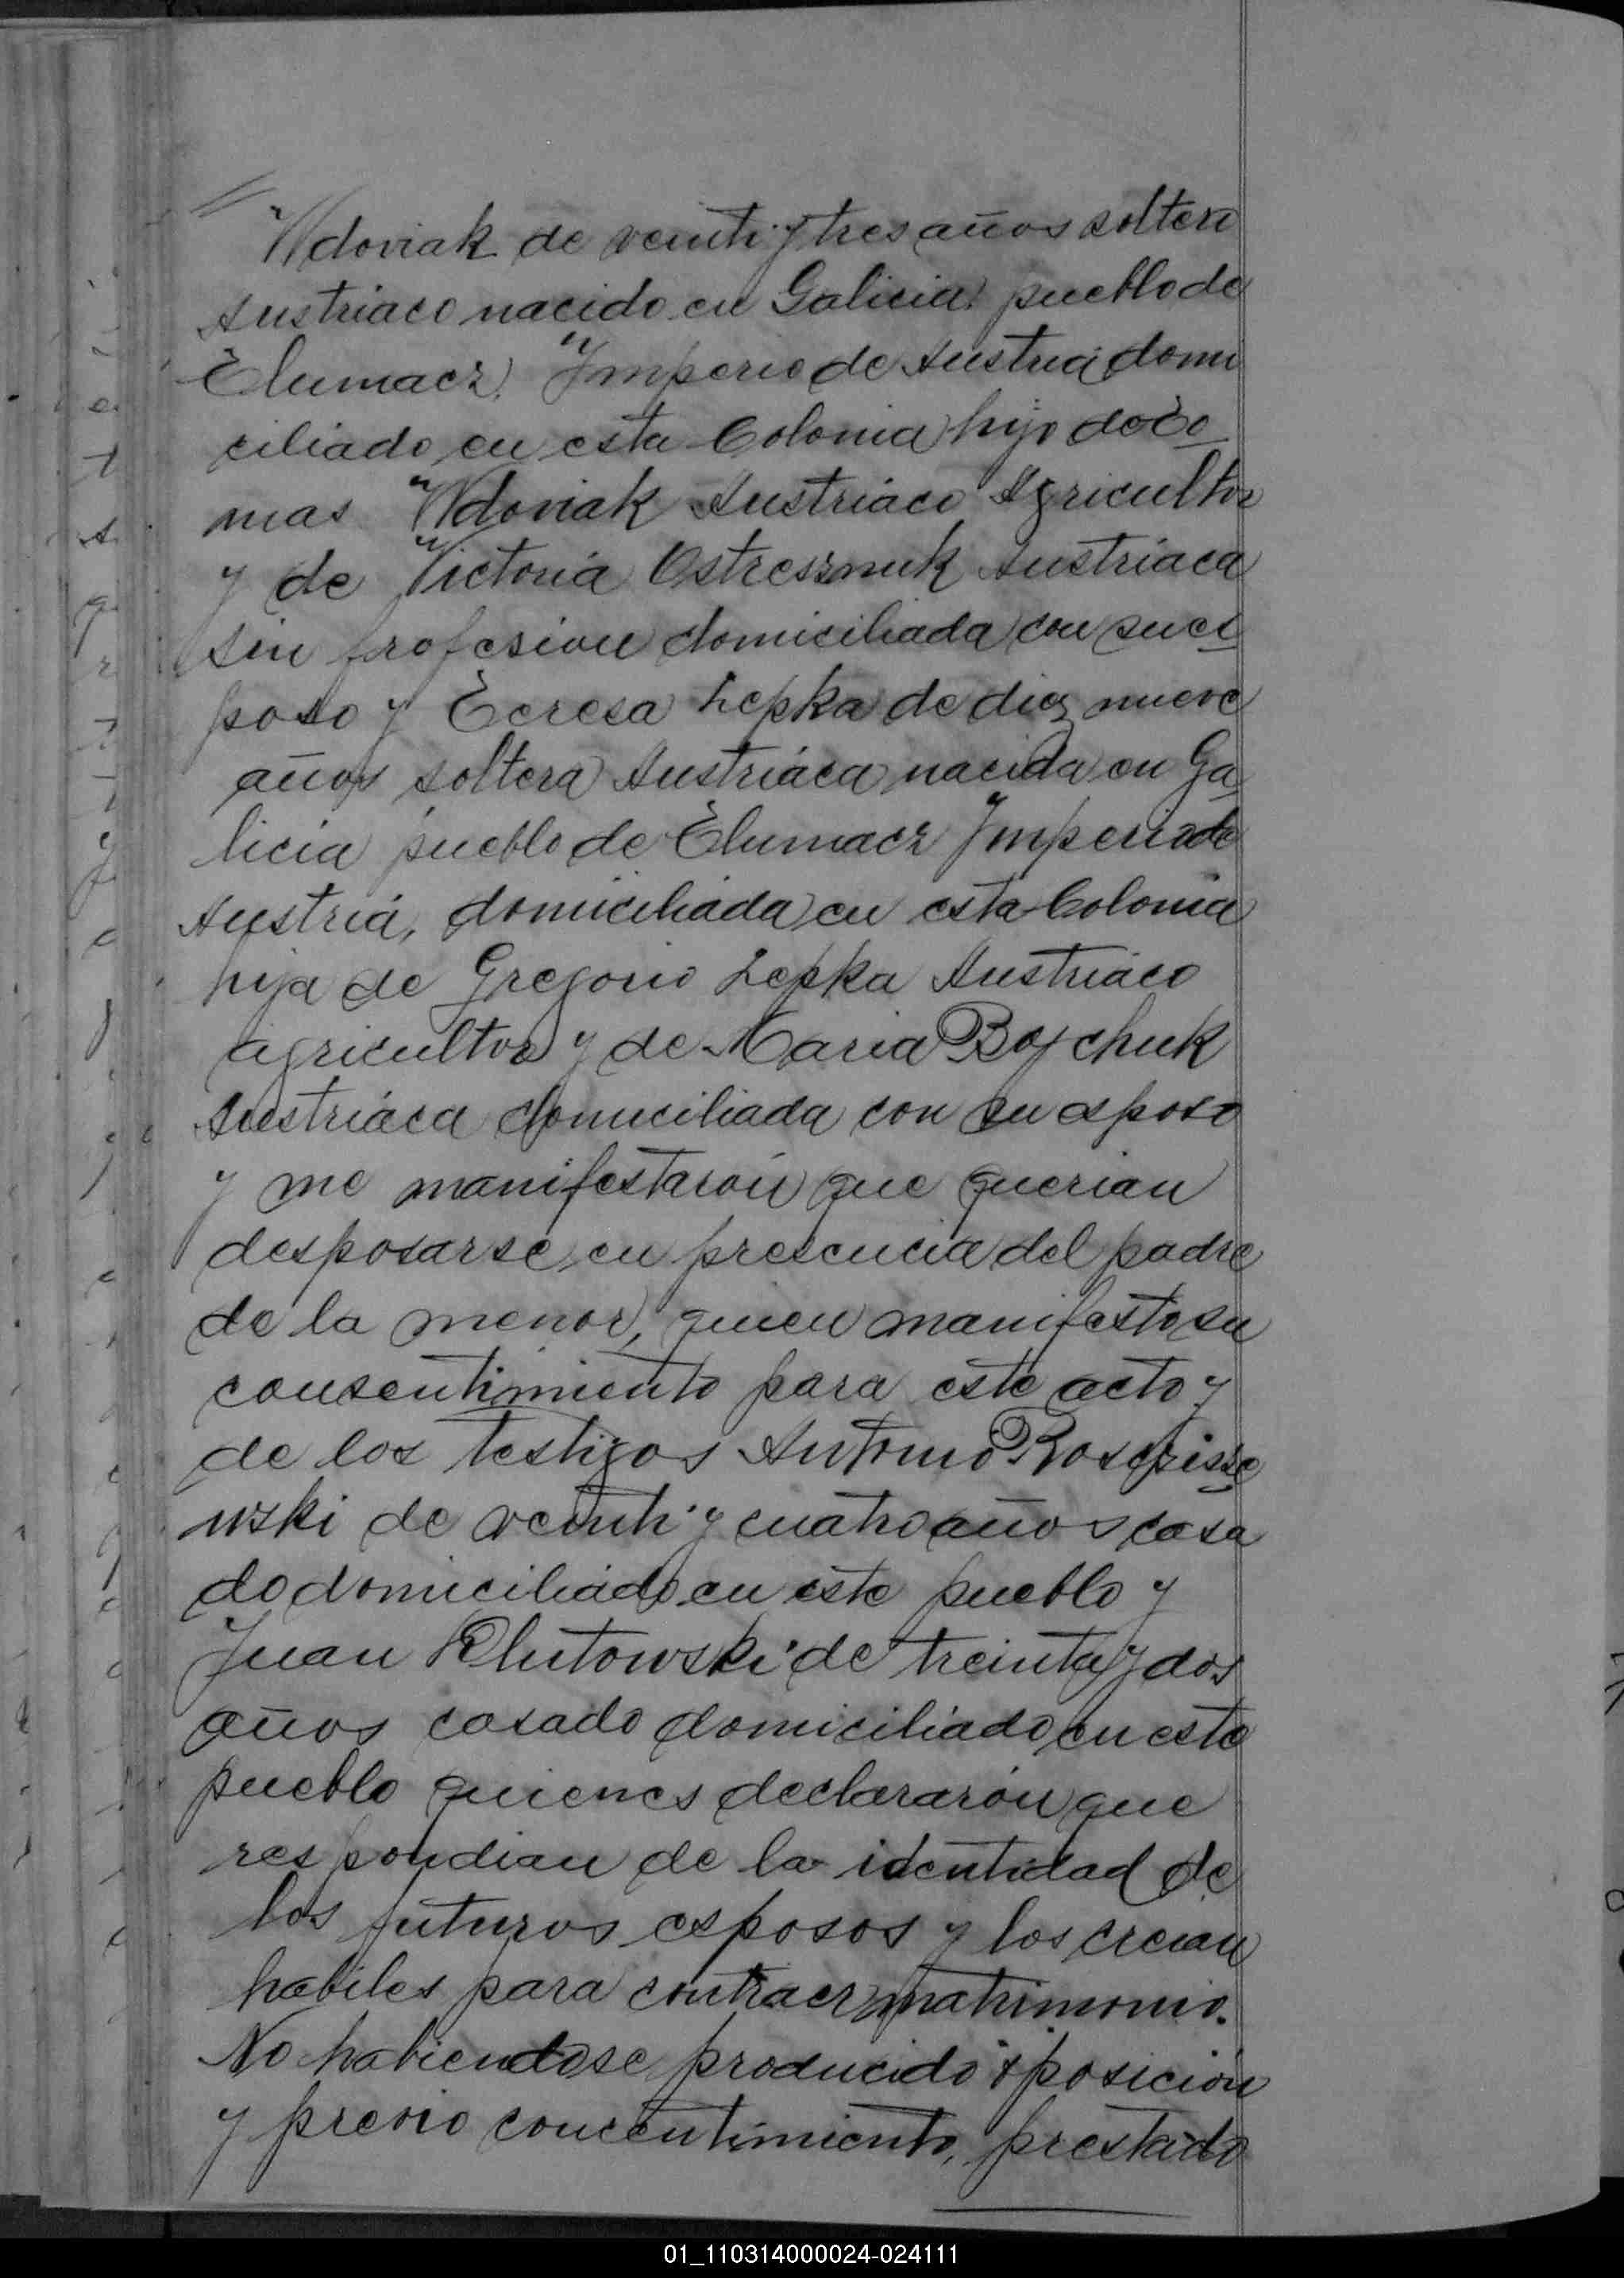 Wdoviak de veinti y tres años soltero
Austriaco nacido en Galicia pueblo de
Tlumacz, Imperio de Austria domi
ciliado en esta Colonia hijo de To
mas Wdoviak Austriaco Agricultor
y de Victoria Ostresznuk Austriaca
sin profesion domiciliada con su es
poso y Teresa Lepka de diez nueve
años soltera Austriaca nacida en Ga
licia pueblo de Tlumacz Imperio de
Austria, domiciliada en esta Colonia
hija de Gregorio Lepka Austriaco
agricultor y de Maria Boychuk
Austriaca domiciliada con su esposo
y me manifestaron que querian
desposarse, en presencia del padre
de la menor, quien manifesto su
consentimiento para este acto y
de los testigos Antonio
wski de veinti y cuatro años casa
do domiciliado en este pueblo y
Juan Klutowski de treinta y dos
años casado domiciliado en este
pueblo quienes declararon que
respondian de la identidad de
los futuros esposos y los creian
habiles para contraer matrimonio.
No habiendose producido oposición
y previo concentimiento, prestado
01_110314000024-024111